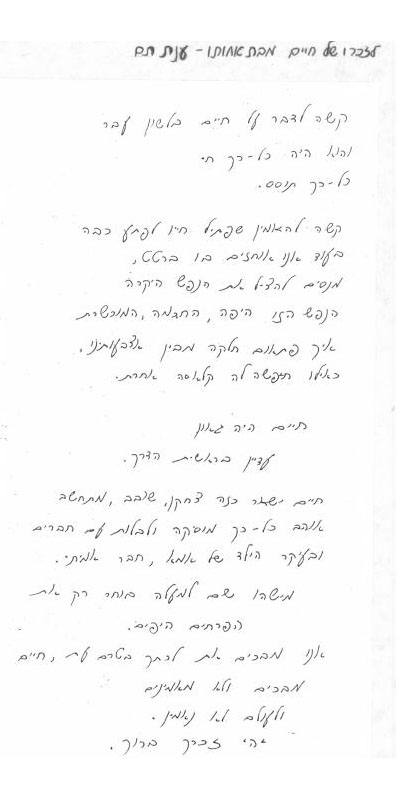 לזכרו של חיים מבת אחותו - ענית תם
קשה לדבר על חיים בלשון עבר
והוא היה כל-כך חי
כל-כך תוסס.
קשה להאמין שפתיל חייו לפתע כבה
בעוד אנו אוחזים בו ברטט,
מנסים להציל את הנפש היקרה
הנפש הזו היפה, החכמה, המוכשרת
איך פתאום חלקה מבין אצבעותינו,
כאילו חיפשה לה קלאסה אחרת.
חיים היה גאון
עדיין בראשית הדרך.
חיים ישאר כזה צחקן, שובב, מתחשב
אוהב כל-כך מוסיקה ולבלות עם חברים
ובעיקר הילד של אמא, חבר אמיתי.
מישהו שם למעלה בוחר רק את
הפרחים היפים.
אנו מבכים את לכתך בטרם עת, חיים
מבכים ולא מאמינים
ולעולם לא נאמין.
יהי זכרך ברוך.